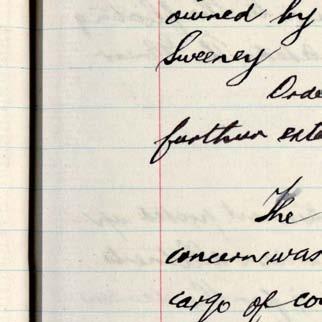 owned by
Sweeney
Orde
further exte
The
concern was
cargo of co